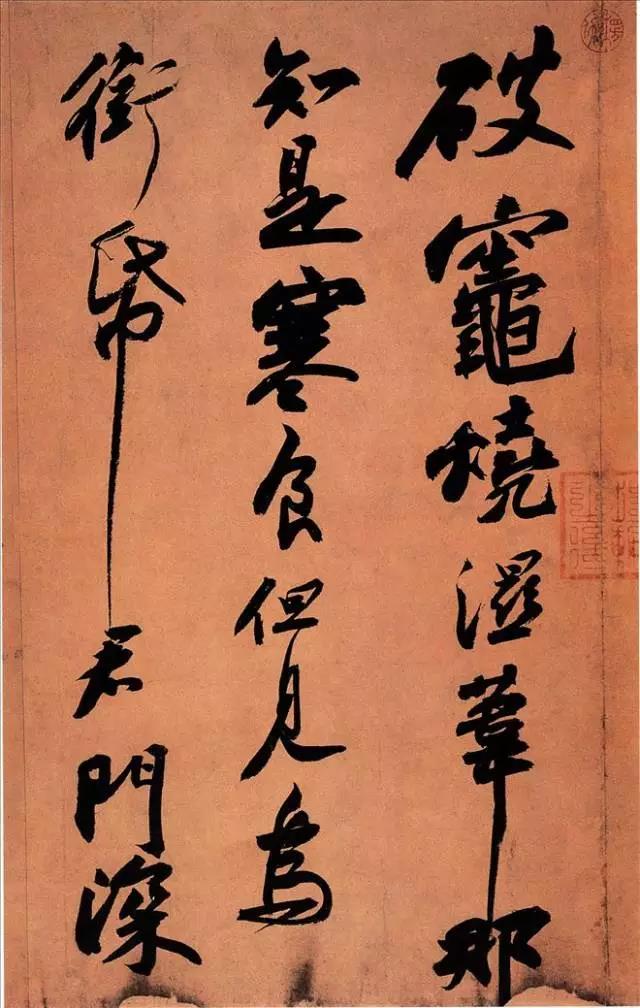 破竈燒溼葦那
知是寒食但見烏
銜帋君門深